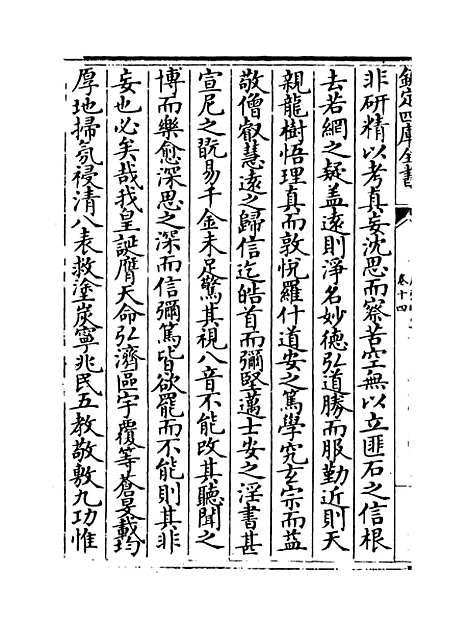 欽定四庫全書
卷十四
非研精以考真妄沈思而察苦空無以立匪石之信根
去若網之疑盖遠則淨名妙德弘道勝而服勤近則天
親龍樹悟理真而敦悅羅什道安之篤學究玄宗而益
敬僧叡慧遠之歸信迄皓首而彌堅邁士安之淫書甚
宣尼之翫易千金未足驚其視八音不能改其聽聞之
博而樂愈深思之深而信彌篤皆欲罷而不能則其非
妄也必矣哉我皇誕膺天命弘濟區宇覆等蒼旻載均
厚地掃氛祲清八表救塗炭寧兆民五教敬敷九功惟